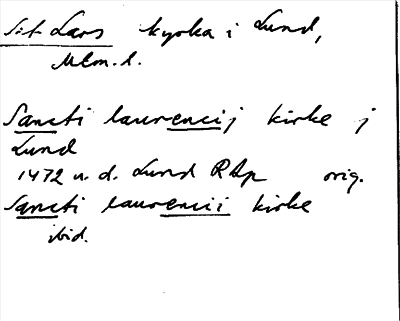 S:t Lars kyrka i Lund,
Mlm. l.
Sancti laurencij kirke j
Lund
1472 u. d. Lund RAp orig.
Sancti laurencii kirke
ibid.